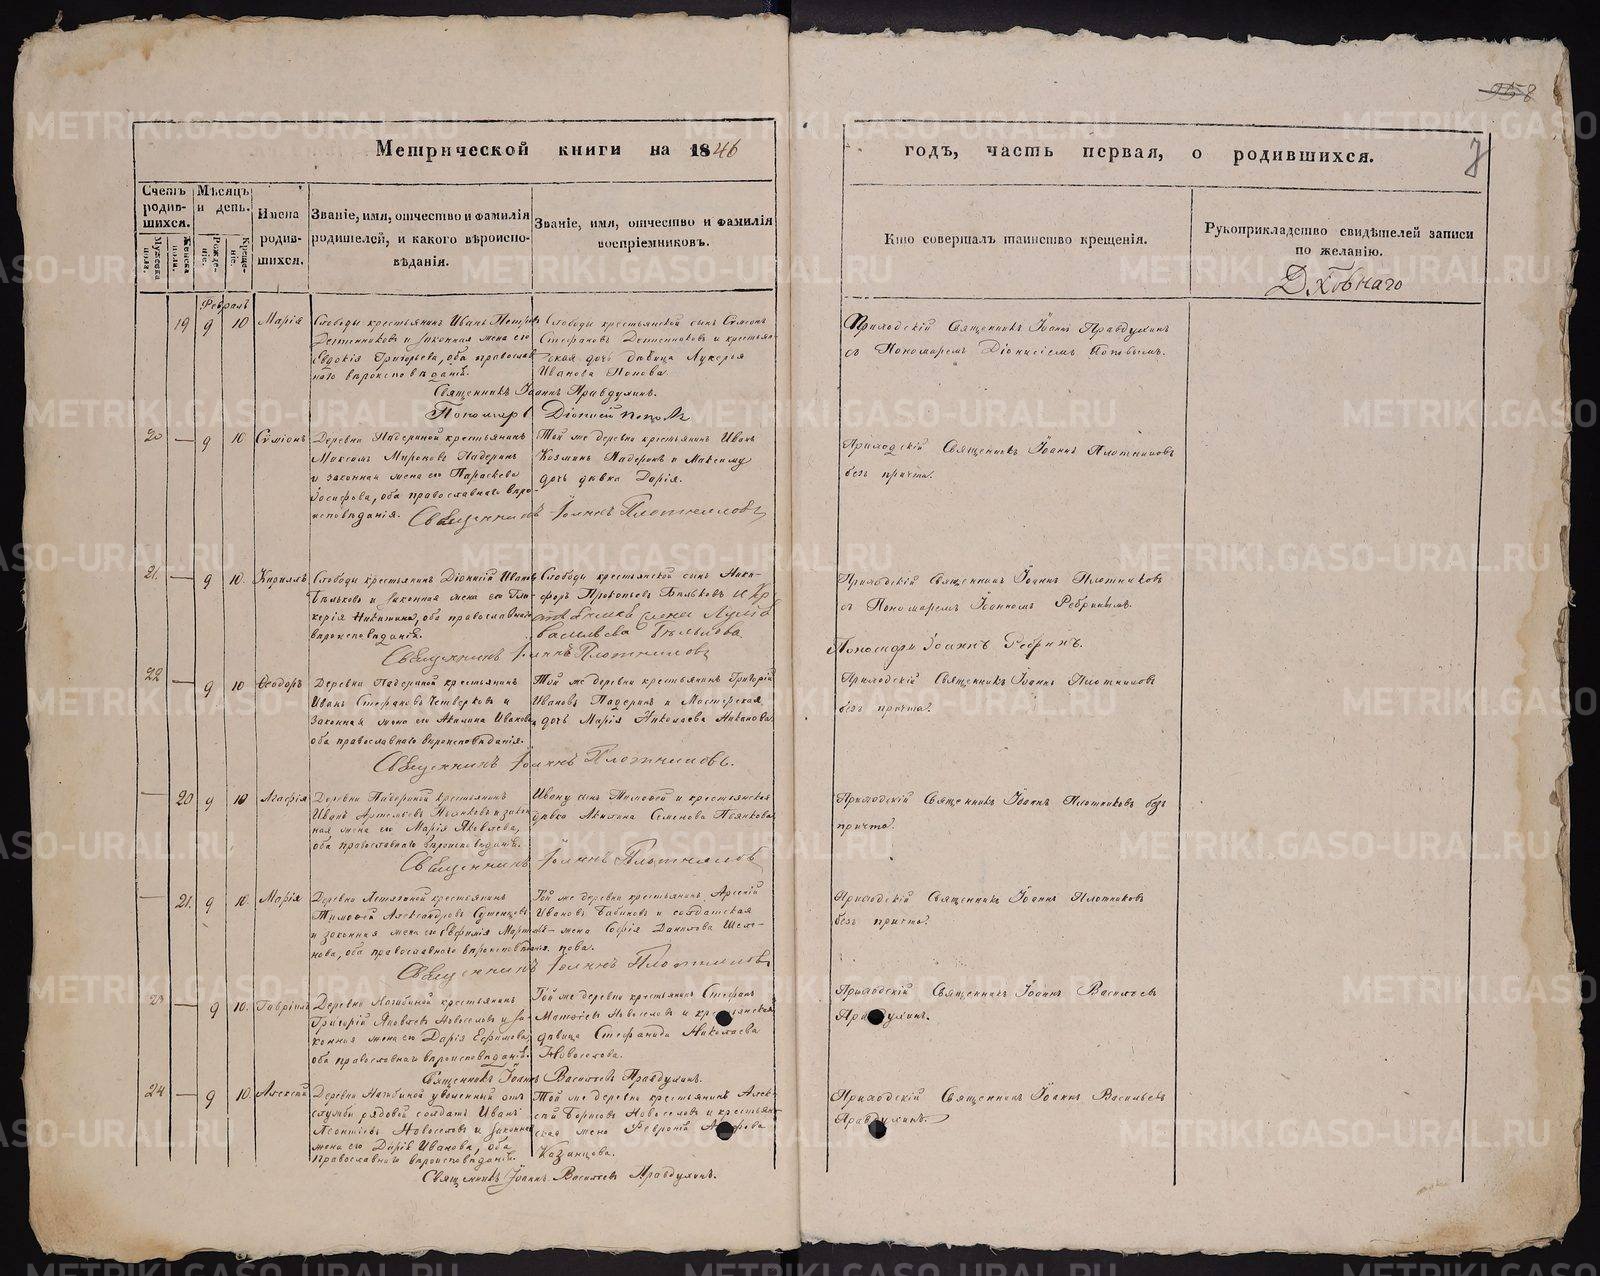 958
Метрической книги на 1846
годъ, часть первая, о родившихся.
7
Счетъ родив-шихся.
Мѣсяцъ и день.
Мужеска пола.
Женска пола.
Рожде-ніе.
Креще-ніе.
Имена родив-шихся.
Званіе, имя, отчество и фамилія
родителей, и какого вѣроиспо-
вѣданія.
Званіе, имя, отчество и фамилія
воспріемниковъ.
Кто совершалъ таинство крещенія.
Рукоприкладство свидѣтелей записи
по желанію.
Февраль
19 9 10 Марія
Слободы крестьянинъ Иванъ Петровъ
и законная жена его
Евдокія Григорьева, оба православ
наго вѣроисповѣданія.
Слободы крестьянской сынъ Сѵмеонъ
Стефановъ и крестьян
ская дочь дѣвица Лукерья
Иванова Попова.
Священникъ Іоаннъ Правдухинъ.
Пономарь Діонисій Поповъ
Приходскій Священникъ Іоаннъ Правдухинъ
съ Пономаремъ Діонисіемъ Поповымъ.
20 — 9 10 Сѵмеонъ
Деревни Падериной крестьянинъ
Максимъ Мироновъ Падеринъ
и законная жена его Параскева
Іосифова, оба православнаго вѣро-
исповѣданія.
Той же деревни крестьянинъ Иванъ
Козминъ Падеринъ и Максиму
дочь дѣвка Дарія.
Священникъ Іоаннъ Плотниковъ
Приходскій Священникъ Іоаннъ Плотниковъ
безъ причта.
21. — 9 10. Кириллъ
Слободы крестьянинъ Діонисій Ивановъ
Бѣльковъ и законная жена его Гли-
керія Никитина, оба православнаго
вѣроисповѣданія.
Слободы крестьянской сынъ Ники-
форъ Прокопьевъ Бѣльковъ
Васильева Бѣлькова
Священникъ Іоаннъ Плотниковъ
Приходскій Священникъ Іоаннъ Плотниковъ
съ Пономаремъ Іоанномъ Ребринымъ.
Пономарь Іоаннъ Ребринъ.
22 — 9 10 Ѳеодоръ
Деревни Падериной крестьянинъ
Иванъ Стефановъ Четверковъ и
законная жена его Акилина Иванова
оба православнаго вѣроисповѣданія.
Той же деревни крестьянинъ Григорій
Ивановъ Падеринъ и Мастерская
дочь Марія Николаева
Священникъ Іоаннъ Плотниковъ.
Приходскій Священникъ Іоаннъ Плотниковъ
безъ причта.
— 20 9 10 Агафія
Деревни Падериной крестьянинъ
Иванъ Артемьевъ Пьянковъ и закон
ная жена его Марія Яковлева,
оба православнаго вѣроисповѣданія.
Ивану сынъ Тимоѳей и крестьянская
дѣвка Акилина Семенова Пьянкова
Священникъ Іоаннъ Плотниковъ
Приходскій Священникъ Іоаннъ Плотниковъ безъ
причта.
— 21. 9 10. Марія
крестьянинъ
Тимоѳей Александровъ
и законная жена его Евфимія Марты-
нова, оба православнаго вѣроисповѣданія.
Той же деревни крестьянинъ Арсеній
Ивановъ Бабиновъ и солдатская
жена Софія Данилова Шеле-
пова.
Священникъ Іоаннъ Плотниковъ
Приходскій Священникъ Іоаннъ Плотниковъ
безъ причта.
23 — 9 10. Гавріилъ
Деревни Нагибиной крестьянинъ
Григорій Яковлевъ Новоселовъ и за-
конная жена его Дарія Ефимова
оба православнаго вѣроисповѣданія.
Той же деревни крестьянинъ Стефанъ
Матѳіевъ Новоселовъ и крестьянская
дѣвица Стефанида Николаева
Новоселова.
Священникъ Іоаннъ Васильевъ Правдухинъ.
Приходскій Священникъ Іоаннъ Васильевъ
Правдухинъ.
24 — 9 10. Алексій
Деревни Нагибиной уволенный отъ
службы рядовой солдатъ Иванъ
Леонтіевъ Новоселовъ и законная
жена его Дарія Иванова, оба
православнаго вѣроисповѣданія.
Той же деревни крестьянинъ Алек-
сѣй Борисовъ Новоселовъ и крестьян-
ская жена Февронія
Казанцова.
Священникъ Іоаннъ Васильевъ Правдухинъ.
Приходскій Священникъ Іоаннъ Васильевъ
Правдухинъ.
METRIKI.GASO-URAL.RU